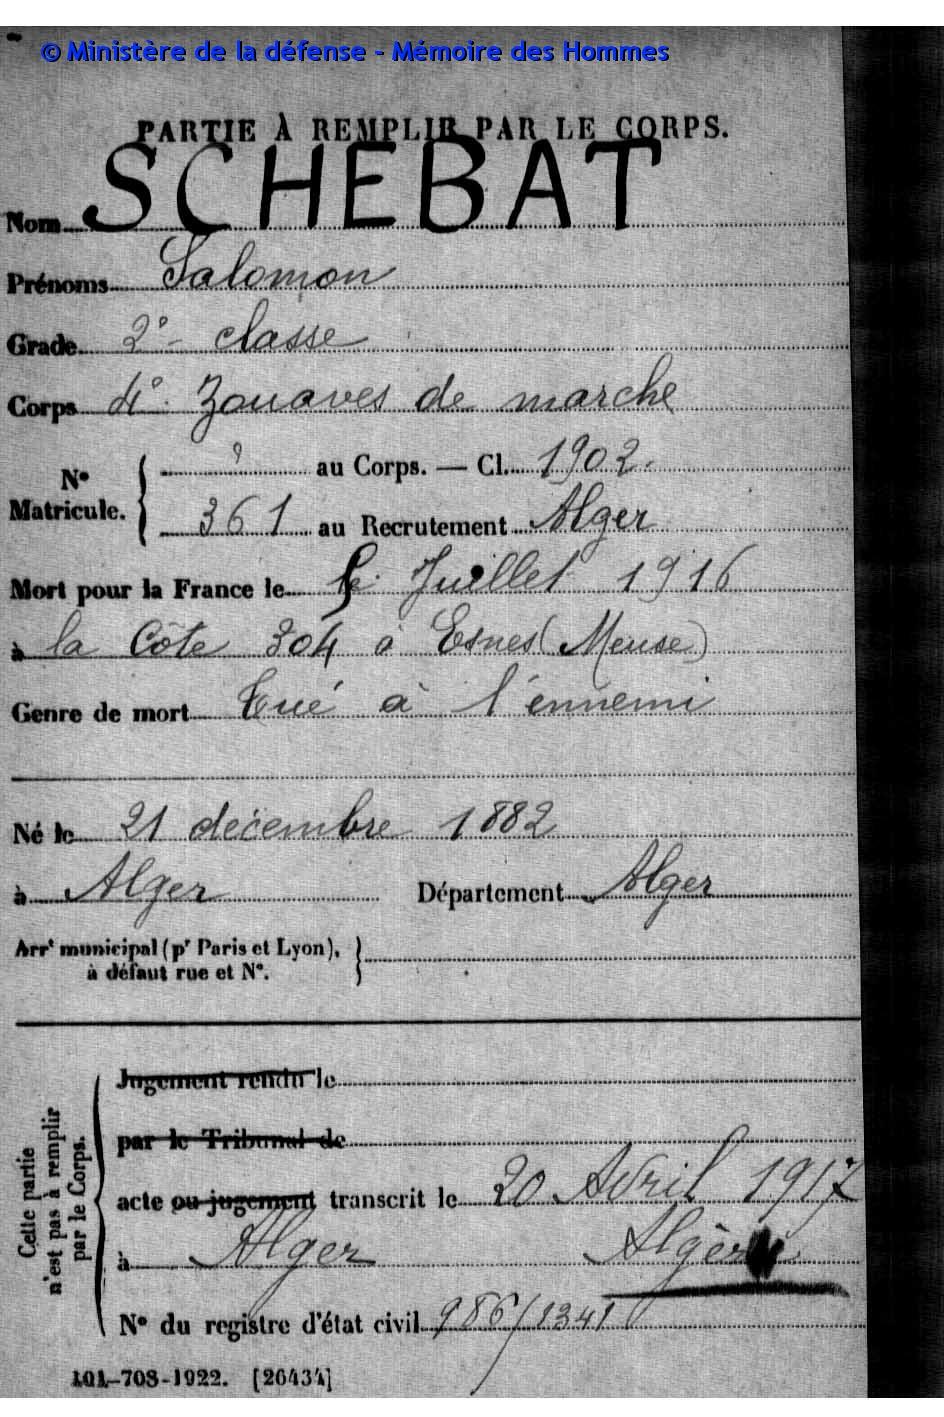 © Ministère de la défense - Mémoire des Hommes
PARTIE À REMPLIR PAR LE CORPS.
Nom SCHEBAT
Prénoms Salomon
Grade 2e - classe
Corps 4e Zouaves de marche
N° Matricule. { ? au Corps. — Cl. 1902.
361 au Recrutement Alger
Mort pour la France le Juillet 1916
à la Côte 304 à Esnes (Meuse)
Genre de mort Tué à l'ennemi
Né le 21 décembre 1882
à Alger Département Alger
Arrt municipal (pr Paris et Lyon),
à défaut rue et N°.
Cette partie
n'est pas à remplir
par le Corps.
Jugement rendu le
par le Tribunal de
acte ou jugement transcrit le 20 Avril 1917
à Alger
N° du registre d'état civil 986/1341
101-708-1922. [26434]